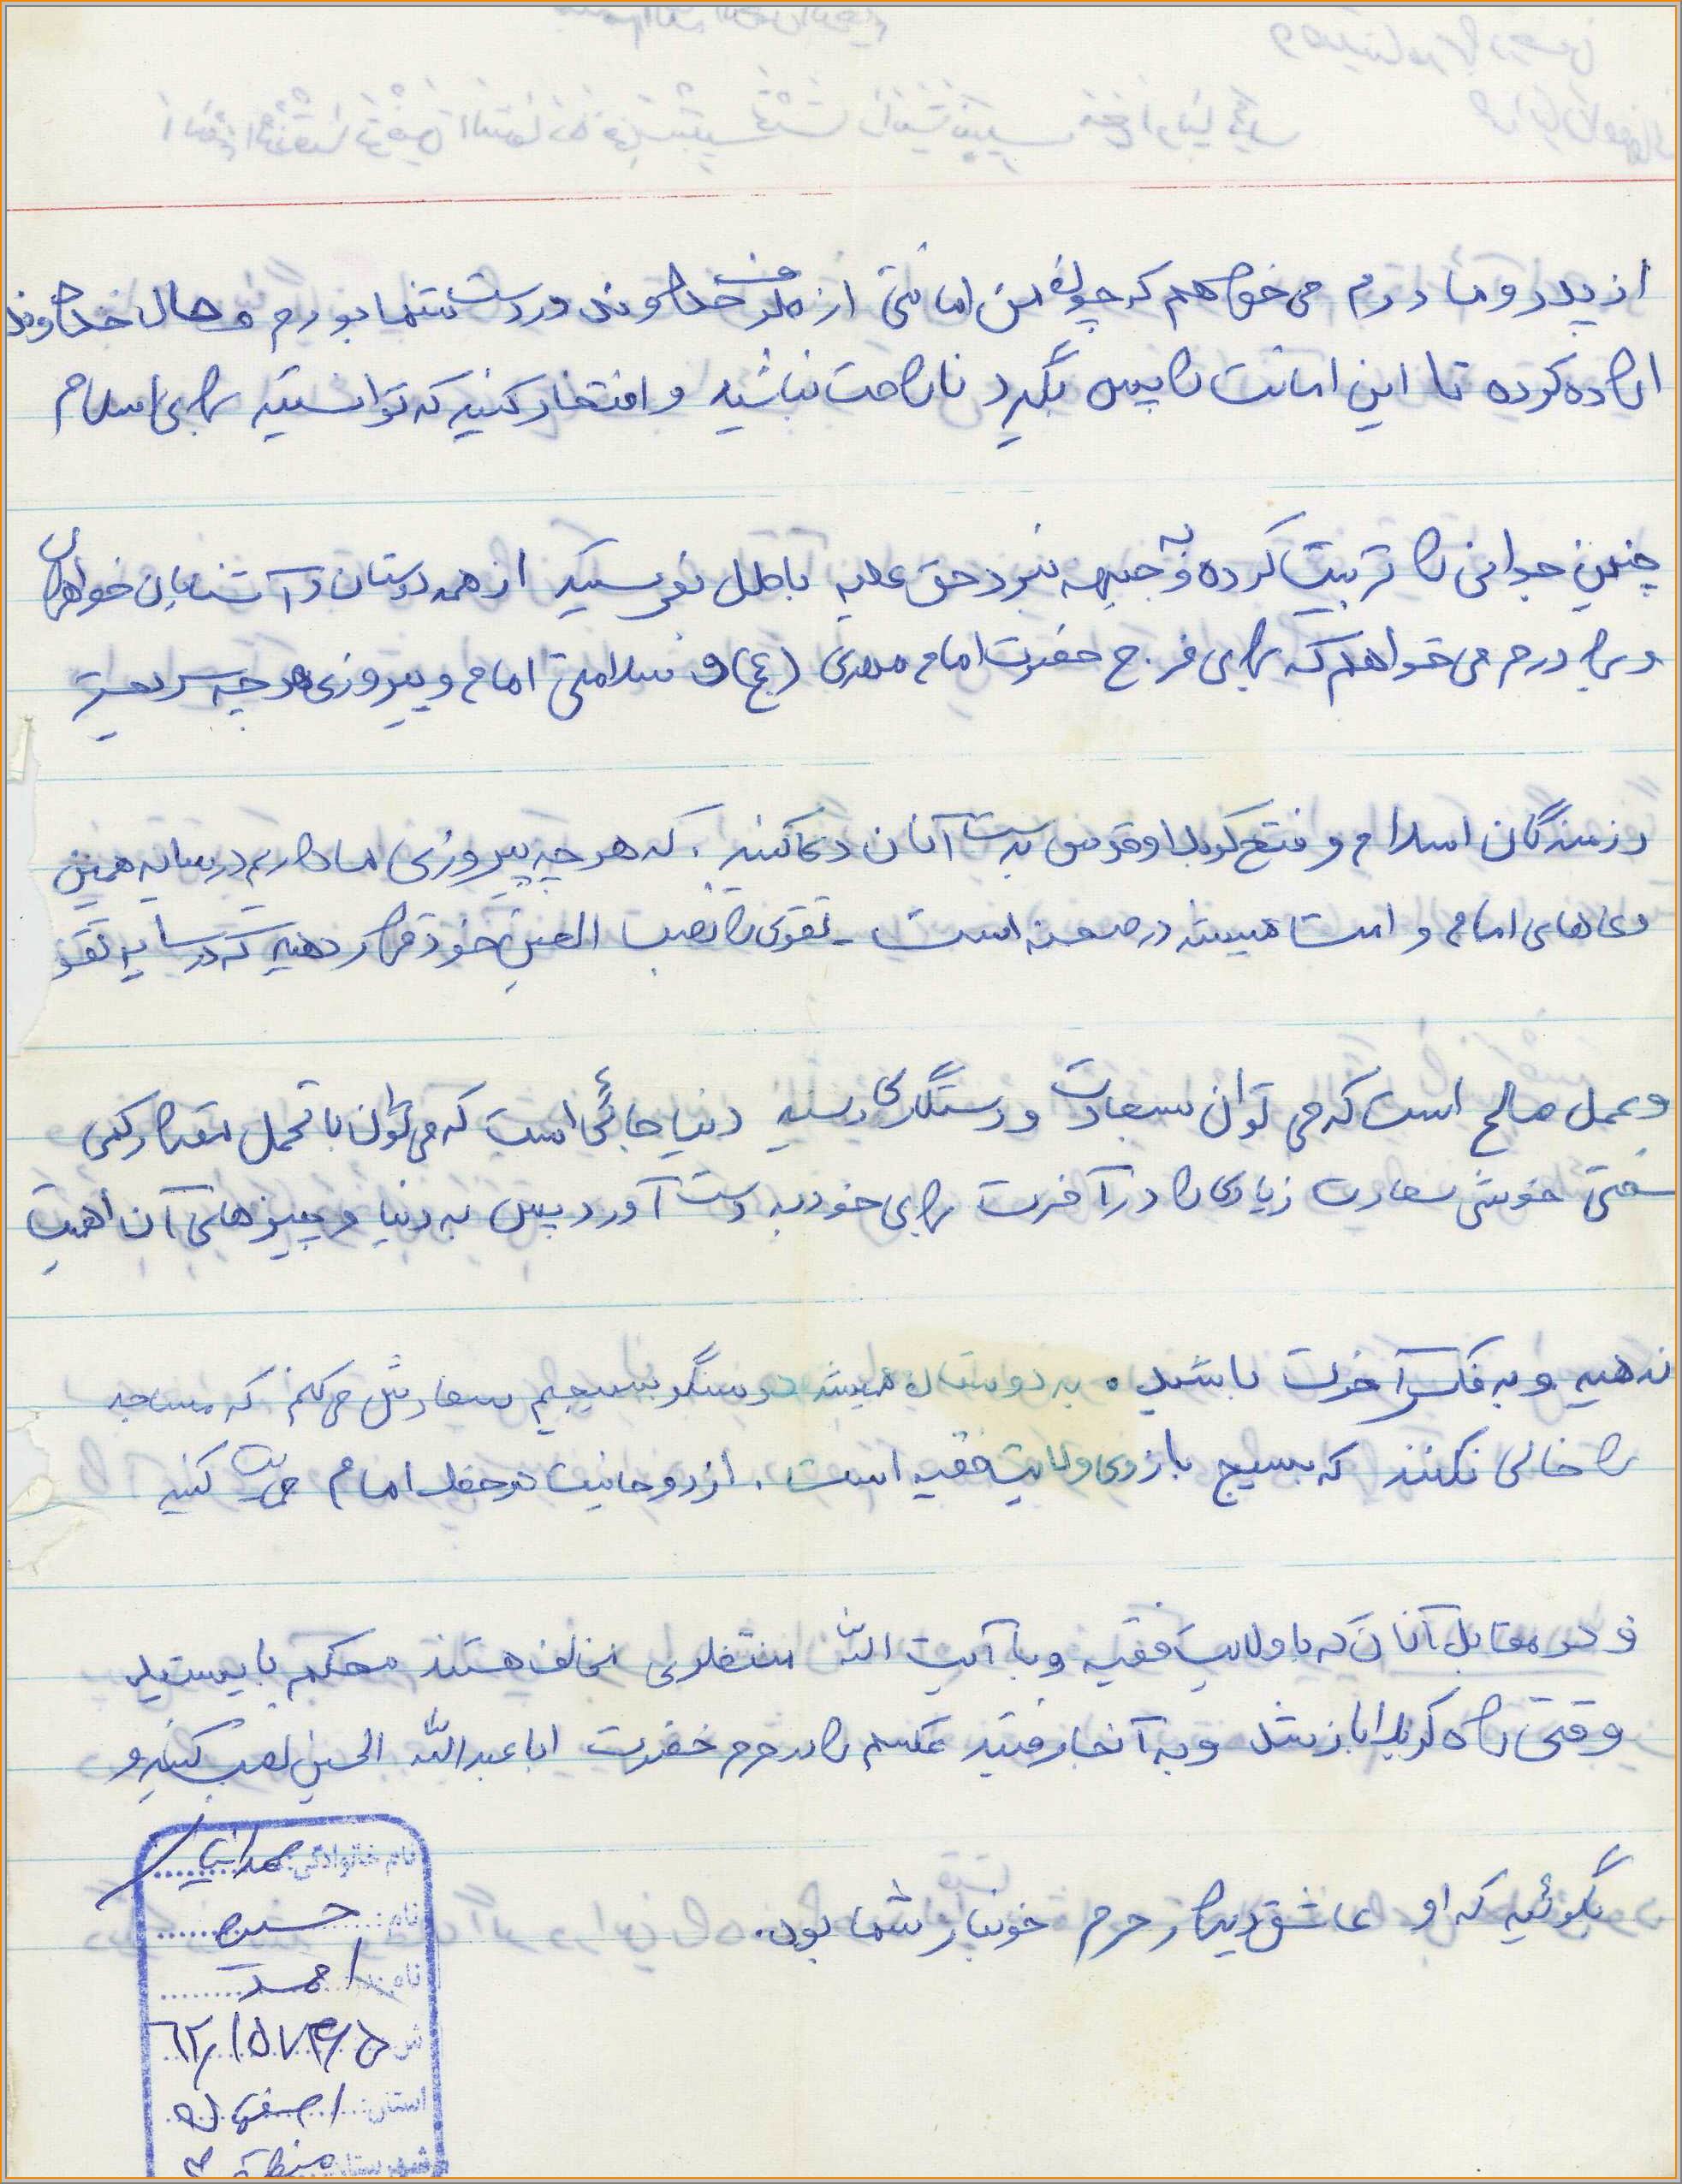 از پدر و مادرم می خواهم که چون من امانتی از طرف خداوند در دست شما بودم و حال خداوند
اراده کرده تا این امانت را پس بگیرد ناراحت نباشید و افتخار کنید که توانستید برای اسلام
چنین جوانی را تربیت کرده و به جبهه نبرد حق علیه باطل بفرستید از همه دوستان و آشنایان خواهران
و برادرم می خواهم که برای فرج حضرت امام مهدی (عج) و سلامتی امام و پیروزی هر چه سریعتر
رزمندگان اسلام و فتح کربلا و قدس بدست آنان دعا کنید. که هر چه پیروزی ما داریم در سایه همین
دعاهای امام و امت همیشه در صحنه است - تقوی را نصب العین خود قرار دهید که در سایه تقو
و عمل صالح است که می توان سعادت و رستگاری رسید دنیا جائی است که می توان با تحمل مقدار کمی
سختی خوشی سعادت زیادی را در آخرت برای خود به دست آورد پس به دنیا و چیزهای آن اهمیت
ندهید و به فکر آخرت باشید. به دوستان همیشه در سنگر بسیجیم سفارش می کنم که مساجد
را خالی نکنند که بسیج بازوی ولایت فقیه است. از روحانیت در خط امام حمایت کنید
و در مقابل آنان که با ولایت فقیه و با آیت الله منتظری مخالف هستند محکم بایستید
وقتی راه کربلا باز شد و به آنجا رفتید عکسم را در حرم حضرت ابا عبدالله الحسین نصب کنید و
بگوئید که او عاشق دیدار حرم خونبار شما بود.
نام خانوادگی:
نام: حسین
نام پدر: احمد
ش
استان: اصفهان
شهرستان: منطقه ۳